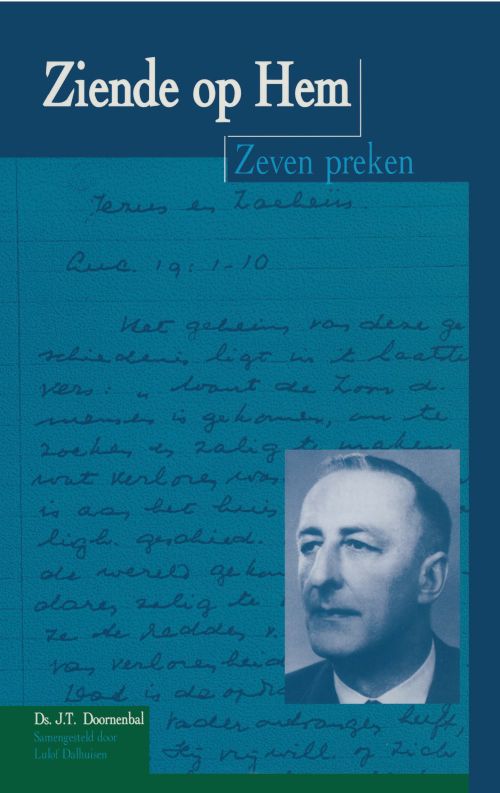 Ziende op Hem
Zeven preken
Jezus en Zacheüs.
Luc. 19:1-10
Het geheim van deze ge
schiedenis ligt in 't laatste
vers: „want de Zoon d.
mensen is gekomen, om te
zoeken en zalig te maken
wat verloren was
is aan het huis
geschied.
de wereld
zalig te
ze te redden v.
van verlorenheid
Dat is de
Vader ontvangen heeft,
Hij vrijwill. op Zich
Ds. J.T. Doornenbal
Samengesteld door
Lulof Dalhuisen